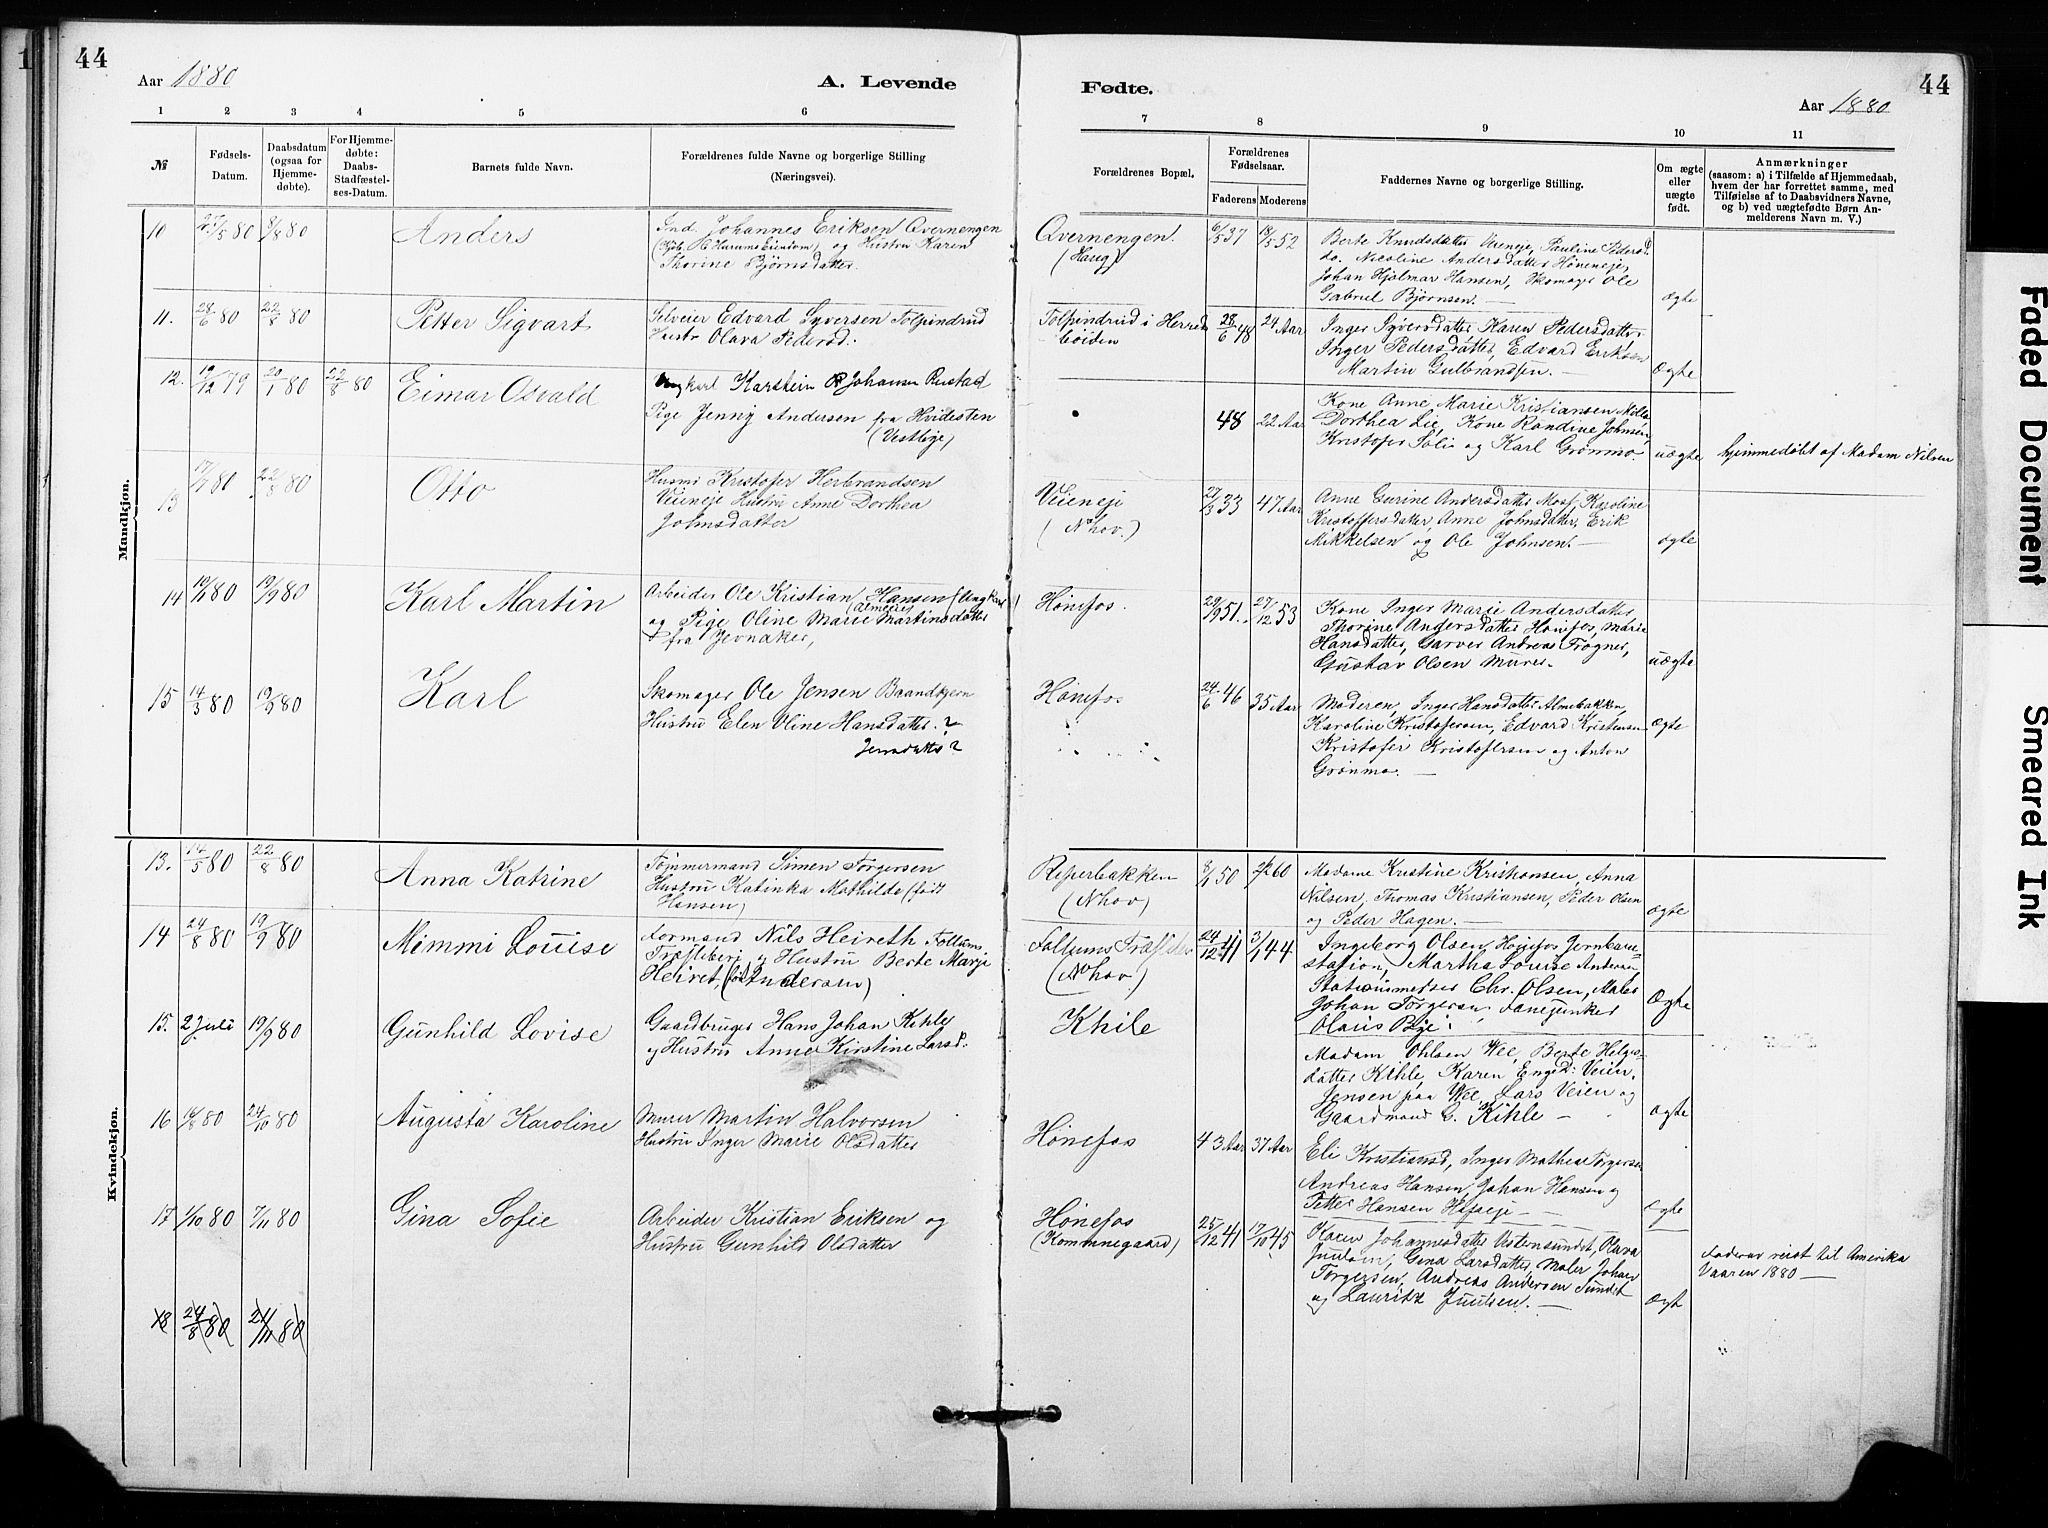 44
Aar 1880
A. Levende
1 2 3 4 5 6
№
Fødsels-Datum.
Daabsdatum (ogsaa for Hjemmedøbte).
For Hjemmedøbte: Daabs-Stadfæstelses-Datum.
Barnets fulde Navn.
Forældrenes fulde Navne og borgerlige Stilling
(Næringsvei).
Mandkjøn.
10 27/5 80 8/8 80 Anders
Ind. Johannes Eriksen Qvernengen
og Hustru Karen
Thorine Bjørnsdatter.
11. 28/6 80 22/8 80 Petter Sigvart
Selveier Edvard Syversen Tolpindrud
Hustr Olava Pedersd.
12. 19/12 79 20/1 80 22/8 80 Eimar Osvald
Ungkarl Karstein Johansen Rustad
Pige Jenny Andersen fra Hvidesten
(Vestbye)
13 17/7 80 22/8 80 Otto
Husmd Kristofer Herbrandsen
Veieneje Hustru Anne Dorthea
Johnsdatter
14 19/9 80 Karl Martin
Arbeider Ole Kristian Hansen (Ungkarl)
og Pige Oline Marie Martinsdatter
fra Jevnaker,
15 14/3 80 19/9 80 Karl
Skomager Ole Jensen Brandtjern
Hustru Elen Oline Hansdatter. ?
Jensdatter?
Kvindekjøn.
13. 14/5 80 22/8 80 Anna Katrine
Tømmermand Simen Torgersen
Hustru Katinka Mathilde (født
Hansen)
14 24/8 80 19/9 80 Mimmi Louise
Formand Nils Heireth. Follums
Træsliberi og Hustru Berte Marje
Heiret, (født Andersen)
15. 2 Juli 19/9 80 Gunhild Lovise
Gaardbruger Hans Johan Kihle
og Hustru Anne Kirstine Larsd.
16 14/8 80 24/10 80 Augusta Karoline
Murer Martin Halvorsen
Hustru Inger Marie Olsdatter
17 1/10 80 7/11 80 Gina Sofie
Arbeider Kristian Eriksen og
Hustru Gunhild Olsdatter
18 24/8 80 21/11 80
44
Fødte.
Aar 1880
7 8 9 10 11
Forældrenes Bopæl.
Forældrenes Fødselsaar.
Faderens Moderens
Faddernes Navne og borgerlige Stilling.
Om ægte eller uægte født.
Anmærkninger
(saasom: a) i Tilfælde af Hjemmedaab,
hvem der har forrettet samme, med
Tilføielse af to Daabsvidners Navne,
og b) ved uægtefødte Børn Anmelderens Navn m. V.)
Qvernengen.
(Haug)
6/5 37 18/5 52
Berte Knudsdatter Veieneje, Pauline Pedersd
do. Nicoline Andersdatter Høneneje,
Johan Hjalmar Hansen, Skomager Ole
Gabriel Bjørnsen. — ægte
Tolpindrud i Herred
bøiden
28/6 48 24 Aar
Inger Syversdatter Karen Pedersdatter,
Inger Pedersdatter, Edvard Eriksen
Martin Gulbrandsen. — Ægte
48 22 Aar
Kone Anne Marie Kristiansen Mølla
Dorthea Lie, Kone Randine Johnsen,
Kristofer Solie og Karl Grønmo. uægte
hjemmedøbt af Madam Nilsen
Veieneje
(Nhov.)
27/3 33 47 Aar
Anne Gurine Andersdatter Moss, Karoline
Kristoffersdatter, Anne Johnsdatter, Erik
Mikkelsen og Ole Johnsen. — ægte
Hønefos.
29/9 51. 27/12 53
Kone Inger Marie Andersdatter,
Thorine Andersdatter Hønefos, Marie
Hansdatter, Garver Andreas Frogner,
Gustav Olsen Murer. uægte
Hønefos
24/6 46 35 Aar
Moderen, Inger Hansdatter Almebakken,
Karoline Kristofersen, Edvard Kristensen
Kristofer Kristofersen og Anton
Grønmo. — Ægte
Reperbakken
(Nhov)
8/1 50 2/2 60
Madame Kristine Kristiansen, Anna
Nilsen, Thomas Kristiansen, Peder Olsen
og Peder Hagen. — ægte
Follums Træsliberi
(Nhov.)
24/12 41 3/1 44
Ingeborg Olsen, Hønefos Jernbane
station, Martha Louise Andersen
Stationsmester Chr. Olsen, Maler
Johan Torgersen, Fanejunker
Olaus Bye. Ægte
Khile
Madam Ohlsen Wee, Berte Helges
datter Kihle, Karen Enge D: Veien,
Jensen paa Wee, Lars Veien og
Gaardmand C. Kihle — ægte
Hønefos
43 Aar 37 Aar
Eli Kristiansd, Inger Mathea Torgersen
Andreas Hansen, Johan Hansen og
Petter Hansen — Ægte
Hønefos
(Kommnegaard)
25/12 41 17/10 45
Karen Johannesdatter Vesternsundet, Olava
Juulsen, Gina Larsdatter, Maler Johan
Torgersen, Andreas Andersen Sundet
og Lauritz Juulsen. — Ægt
Faderen reist til Amerika
Vaaren 1880 —
Faded Document
Smeared Ink